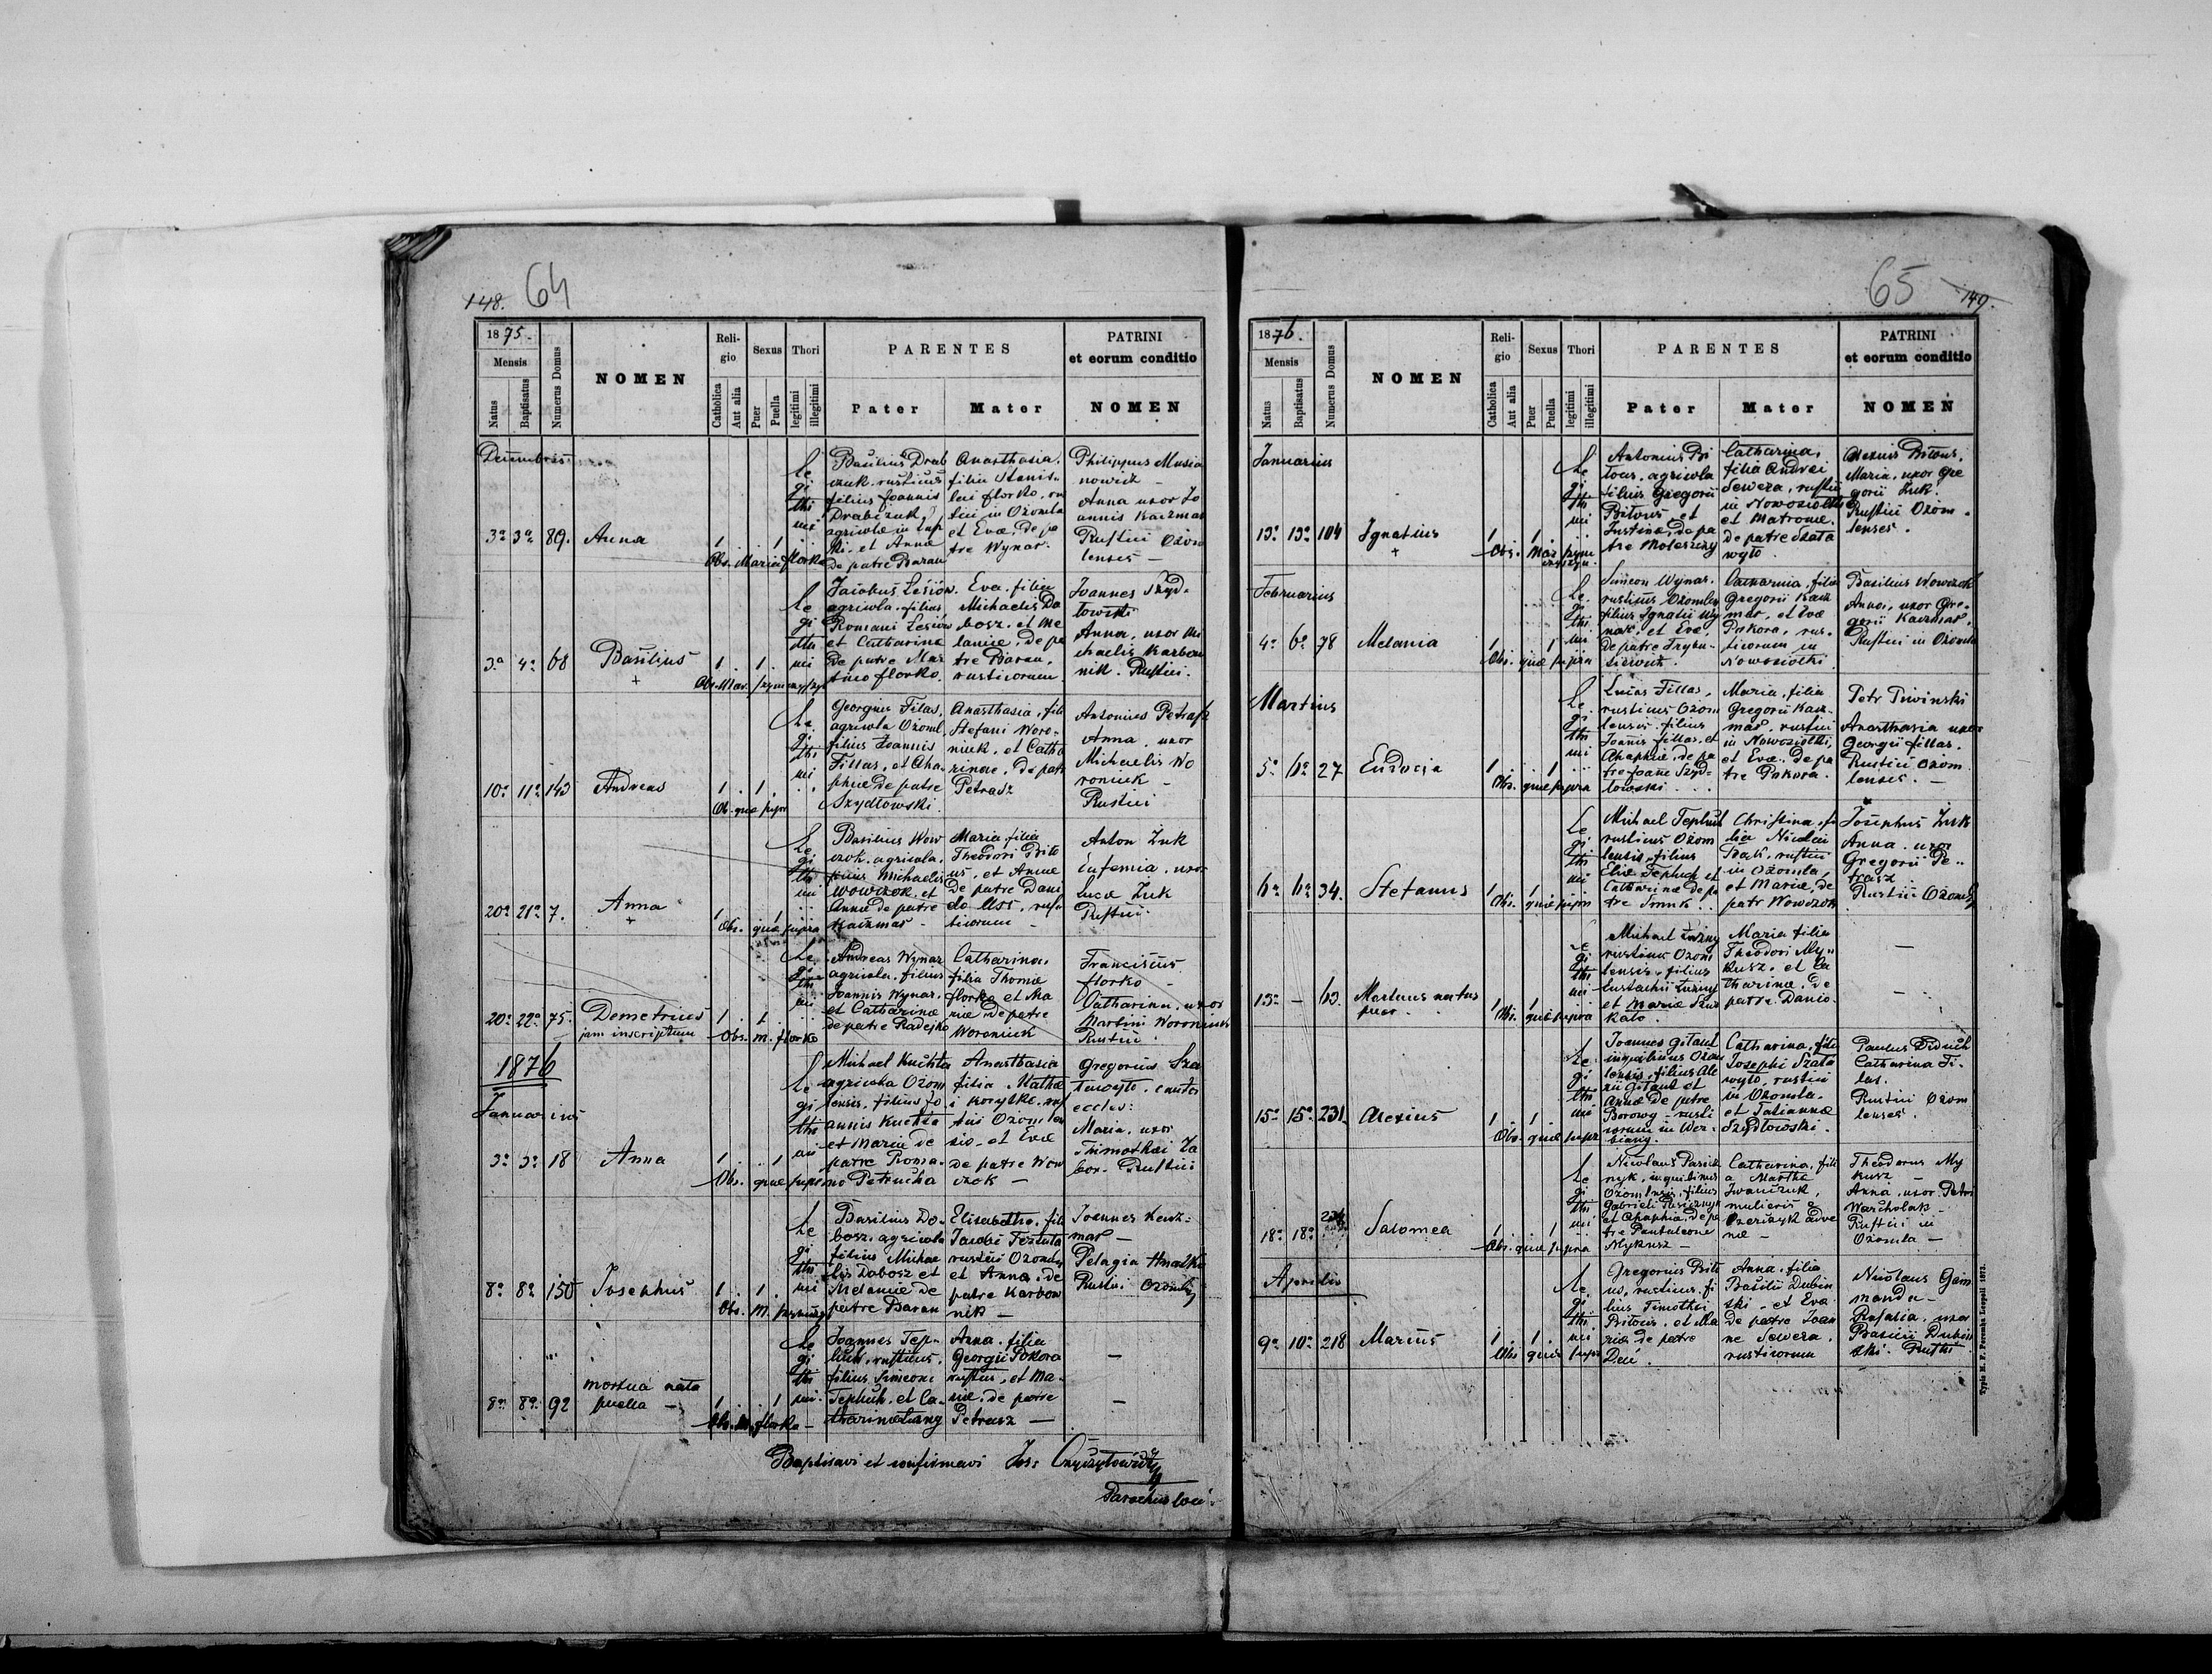 148. 64
1875.
Mensis
Natus
Baptisatus
Numerus Domus
NOMEN
Reli-
gio
Catholica
Aut alia
Sexus
Puer
Puella
Thori
legitimi
illegitimi
PARENTES
Pater
Mater
PATRINI
et eorum conditio
NOMEN
Decembris
3a 3a 89. Anna 1 . . 1
Le
gi
thi
mi
Basilius Drab
czuk. rusticus
filius Joannis
Drabczuk,
agricolæ in
et Annæ
de patre Baran
Anasthasia,
filia Stanis-
lai Florko, ru
tici in Ozomla
et Evæ, de pa
tre Wynar.
Philippus Musia
nowicz -
Anna uxor Jo
annis Kaczmar
Rustici Ozom
lenses -
Obs. Maria Florko
3a 4a 68 Basilius 1 . 1 .
+
Le
gi
thi
mi
Jacobus Lesiów.
agricola. filius
Romani Lesiów
et Catharinæ
de patre Mar
tino Florko.
Eva. filia
Michaelis Do
bosz. et Me
laniæ, de pa
tre Baran,
rusticorum
Joannes Szyd-
łowski
Anna, uxor Mi
chaelis Karbow
nik. Rustici.
10a 11a 143 Andreas 1 . 1 .
Le
gi
thi
mi
Georgius Filas,
agricola Ozoml,
filius Joannis
Fillas, et Aha-
phiæ de patre
Szydłowski.
Anasthasia, fili
Stefani Woro-
niuk, et Catha
rinæ, de patr
Petrasz
Antonius Petrasz
Anna, uxor
Michaelis Wo
roniuk -
Rustici
Ob. quæ supr
20a 21a 7. Anna 1 1
+
Le
gi
thi
mi
Basilius Wow
czok. agricola,
filius Michaelis
Wowczok, et
Annæ de patre
Kaczmar -
Maria filia
Theodori Bito
us, et Annæ
de patre Dani
elo Uss, rus-
ticorum -
Anton Żuk
Eufemia, uxor
Lucæ Żuk
Rustici
Obs. quæ supra
20a 22a 75. Demetrius 1 . 1 .
jam inscriptum
Le
gi
thi
mi
Andreas Wynar
agricola. filius
Joannis Wynar,
et Catharinæ
de patre Radejko
Catharina,
filia Thomæ
Florko et Ma
riæ de patre
Woroniuk
Franciscus
Florko -
Catharina, uxor
Martini Woroniuk
Rustici
Obs. M. Florko
1876
Januarius
3a 3a 18 Anna 1 . . 1
Le
gi
thi
mi
Michael Kuchta
agricola Ozom
lensis, filius Jo
annis Kuchta
et Mariæ de
patre Roma-
no Petrucha
Anasthasia
filia
Korytko. rus
tici Ozomlen
sis. et Evæ
de patre Wow
czok -
Gregorius Sza
tawyło. cantor
eccles:
Maria, uxor
Timothei Za
bor. Rustici
Obs. quæ supr
8a 8a 150 Josephus 1 . 1 .
Le
gi
thi
mi
Basilius Do-
bosz, agricola
filius Michae
lis Dobosz et
Melaniæ de
patre Baran
Elisabetha, fili
Jacobi
rustici Ozomlen
et Annæ, de
patre Karbow
nik -
Joannes Kacz-
mar -
Pelagia
Rustici Ozomlen
Obs. M.
8a 8a 92 mortua nata 1 . . 1
puella -
Le
gi
thi
mi.
Joannes Tep-
luch, rusticus.
filius Simeoni
Tepluch, et Ca-
tharinæ
Anna. filia
Georgii Pokora
rustici, et Ma-
riæ, de patre
Petrasz -
-
-
Obs. M. Florko -
Baptisavi et confirmavi Jos:
Parochus loci.
65 149.
1876.
Mensis
Natus
Baptisatus
Numerus Domus
NOMEN
Reli-
gio
Catholica
Aut alia
Sexus
Puer
Puella
Thori
legitimi
illegitimi
PARENTES
Pater
Mater
PATRINI
et eorum conditio
NOMEN
Januarius
13a 13a 104 Ignatius 1 1
+
Le
gi
thi
mi
Antonius Bi
tous, agricola
filius Gregorii
Bitous et
Justinæ, de pa
tre
Catharina,
filia Andrei
Sewera, rustici
in Nowosiołki
et Matronæ,
de patre Szata
wyło.
Alexius Bitous,
Maria, uxor Gre
gorii Żuk.
Rustici Ozom
lenses.
Februarius
4a 6a 78 Melania 1 . . 1
Le
gi
thi
mi
Simeon Wynar.
rusticus Ozomlen
filius Ignatii Wy
nar, et Evæ,
de patre
Catharina, filia
Gregorii Kacz
mar, et Evæ
Pokora, rus-
ticorum in
Nowosiołki
Basilius Wowczok
Anna, uxor Gre-
gorii Kaczmar,
Rustici in Ozomla
Obs. quæ supra
Martius
5a 6a 27 Eudocia 1 . . 1
Le
gi
thi
mi
Lucas Fillas,
rusticus Ozom
lensis filius
Joannis Fillas, et
Ahaphiæ, de pa
tre Joane Szyd-
łowski . . .
Maria, filia
Gregorii Kacz
mar, rustici
in Nowosiołki,
et Evæ, de pa
tre Pokora.
Petr
Anasthasia uxor
Georgii Fillas.
Rustici Ozom
lenses. -
Obs. quæ supra
6a 6a 34. Stefanus 1 . 1 .
Le
gi
thi
mi
Michael Tepluch
rusticus Ozom
lensis, filius
Eliæ Tepluch et
Catharinæ de pa
tre
Christina, fi
lia Nicolai
rustici
in Ozomla,
et Mariæ, de
patr Wowczok
Josephus Żuk
Anna. uxor
Gregorii Pe-
trasz
Rustici Ozomlen
Obs. quæ supra
13a - 63. Mortuus natus 1 . 1 .
puer
Le
gi
thi
mi
Michael
rusticus Ozom
lensis, filius
Eustachii
et Mariæ
Maria filia
Theodori My-
kusz. et Ca
tharinæ, de
patre Danio-
-
-
Obs. quæ supra
15a 15a 231. Alexius 1 . 1 .
Le
gi
thi
mi
Joannes
inquilinus Ozom
lensis, filius Ale
xii et
Annæ de patre
Borowy - rusti
corum in Wer-
biany.
Catharina, fili
Josephi Szata
wyło, rustici
in Ozomla.
et Tatiannæ
Szydłowski.
Paulus Diduch
Catharina Fi-
las.
Rustici Ozom
lenses.
Obs. quæ supr
18a 18a Salomea 1 . . 1
Le
gi
thi
mi
Nicolaus Pasicz
nyk, inquilinus
Ozomlensis, filius
Gabrieli Pasicznyk
et Ahaphiæ, de pa
tre Pantaleone
Mykusz -
Catharina, fili
a Martha
Iwanczuk,
mulieris
adve
næ -
Theodorus My
kusz -
Anna, uxor Petri
Warcholak -
Rustici in
Ozomla -
Obs. quæ supra
Aprilis
9a 10a 218 Marcus 1 . 1 .
Le
gi
thi
mi
Gregorius Bito
us, rusticus, fi
lius Timothei
Bitous, et Ma
riæ de patre
Anna, filia
Basilii Dubin
ski - et Evæ
de patre Joan
ne Sewera,
rusticorum
Nicolaus
Rosalia, uxor
Basilii Dubin
ski. Rustici
Obs quæ supr
Typis M. F. Poremba Leopoli 1873.